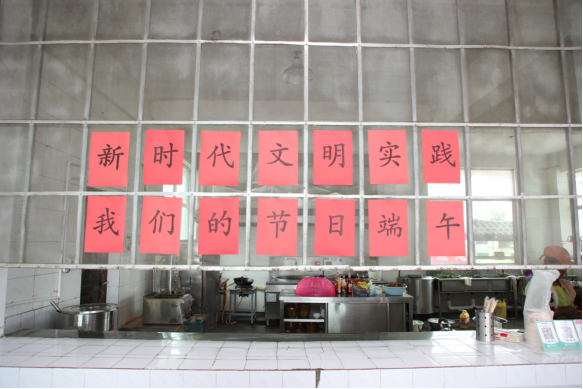 新时代文明实践
我们的节日端午